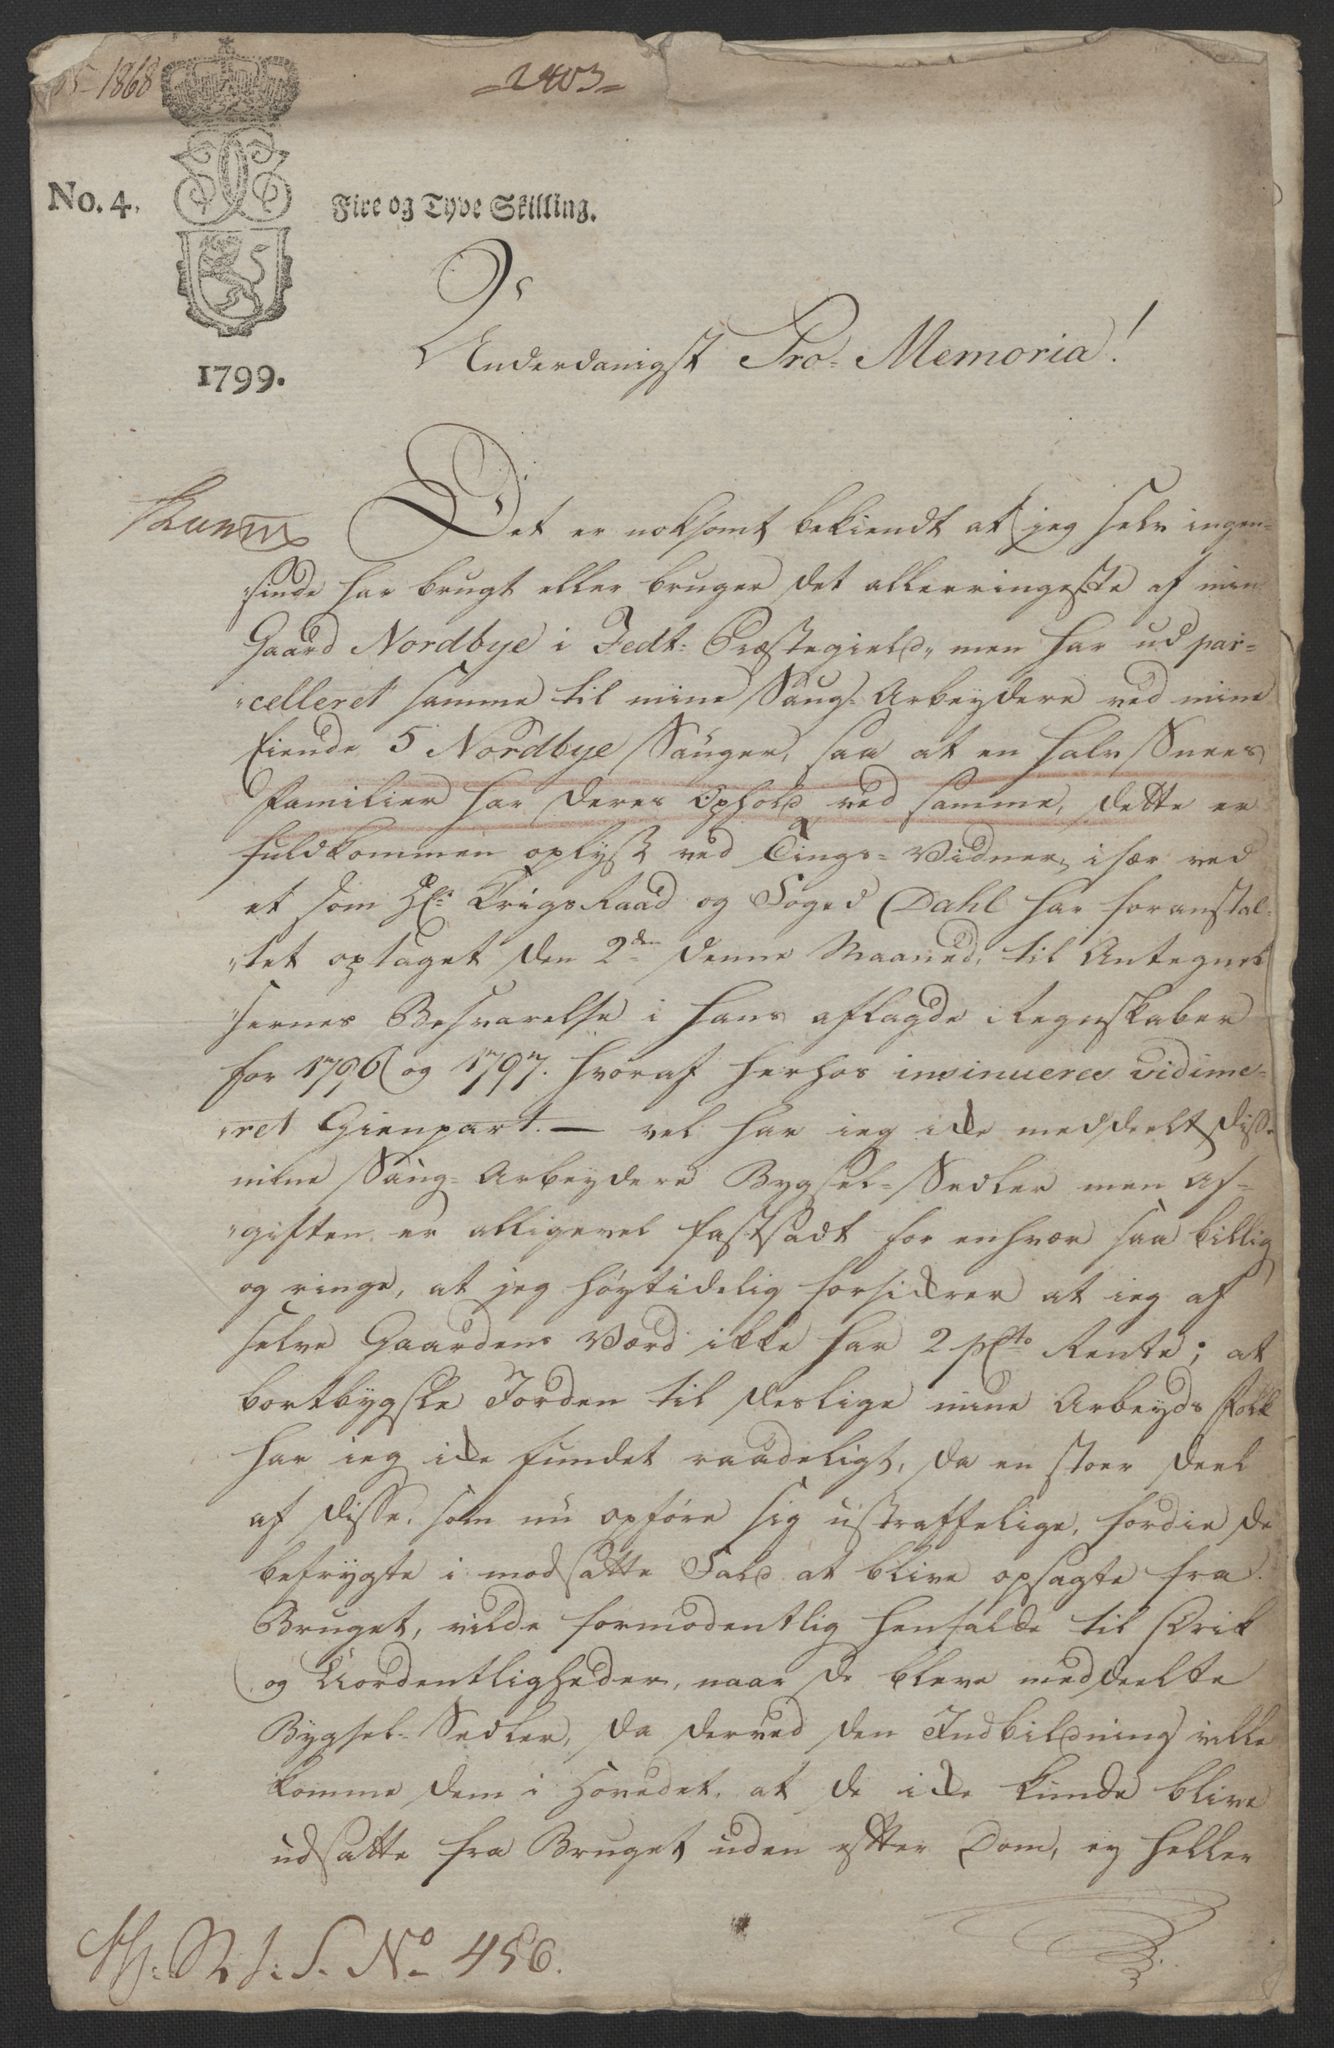 1868
2403
No. 4.
Fire og Tyve Skilling.
1799.
Underdanigst Pro-Memoria!
Det er noksomt bekiendt at jeg selv ingen-
sinde har brugt eller bruger det allerringeste af min
Gaard Nordbye i Jedt: Præstegield, men har udpar-
celleret samme til mine Saug-Arbeydere ved mine
Eiende 5 Nordbye Sauger, saa at en halv Snees
Familier har deres Ophold ved samme, dette er
fuldkommen oplyst ved Tings-Vidner, især ved
et som Hr: KrigsRaad og Foged Dahl har foranstal-
tet optaget den 2den denne Maaned, til Antegnel-
sernes Besvarelse i hans aflagde Regnskaber
for 1796 og 1797. hvoraf herhos insinueres vidime-
ret Gienpart. — vel har ieg icke meddeelt disse
mine Saug-Arbeydere Bygsel-Sedler men Af-
giften er alligevel fastsadt for enhver saa billig
og ringe, at jeg høytidelig forsickrer at ieg af
selve Gaardens Værd ikke har 2 pCto Rente; at
bortbygsle Jorden til deslige mine Arbeyds Folk
har ieg icke fundet raadeligt, da en stoer Deel
af disse, som nu opføre sig ustraffelige, fordie de
befrygte i modsatte Fald at blive opsagte fra
Bruget, vilde formodentlig henfalde til Drik
og Uordentligheder, naar de bleve meddeelte
Bygsel-Sedler, da derved den Indbildning ville
komme dem i Hovedet, at de icke kunde blive
udsatte fra Bruget uden efter Dom, ey heller
No 456.